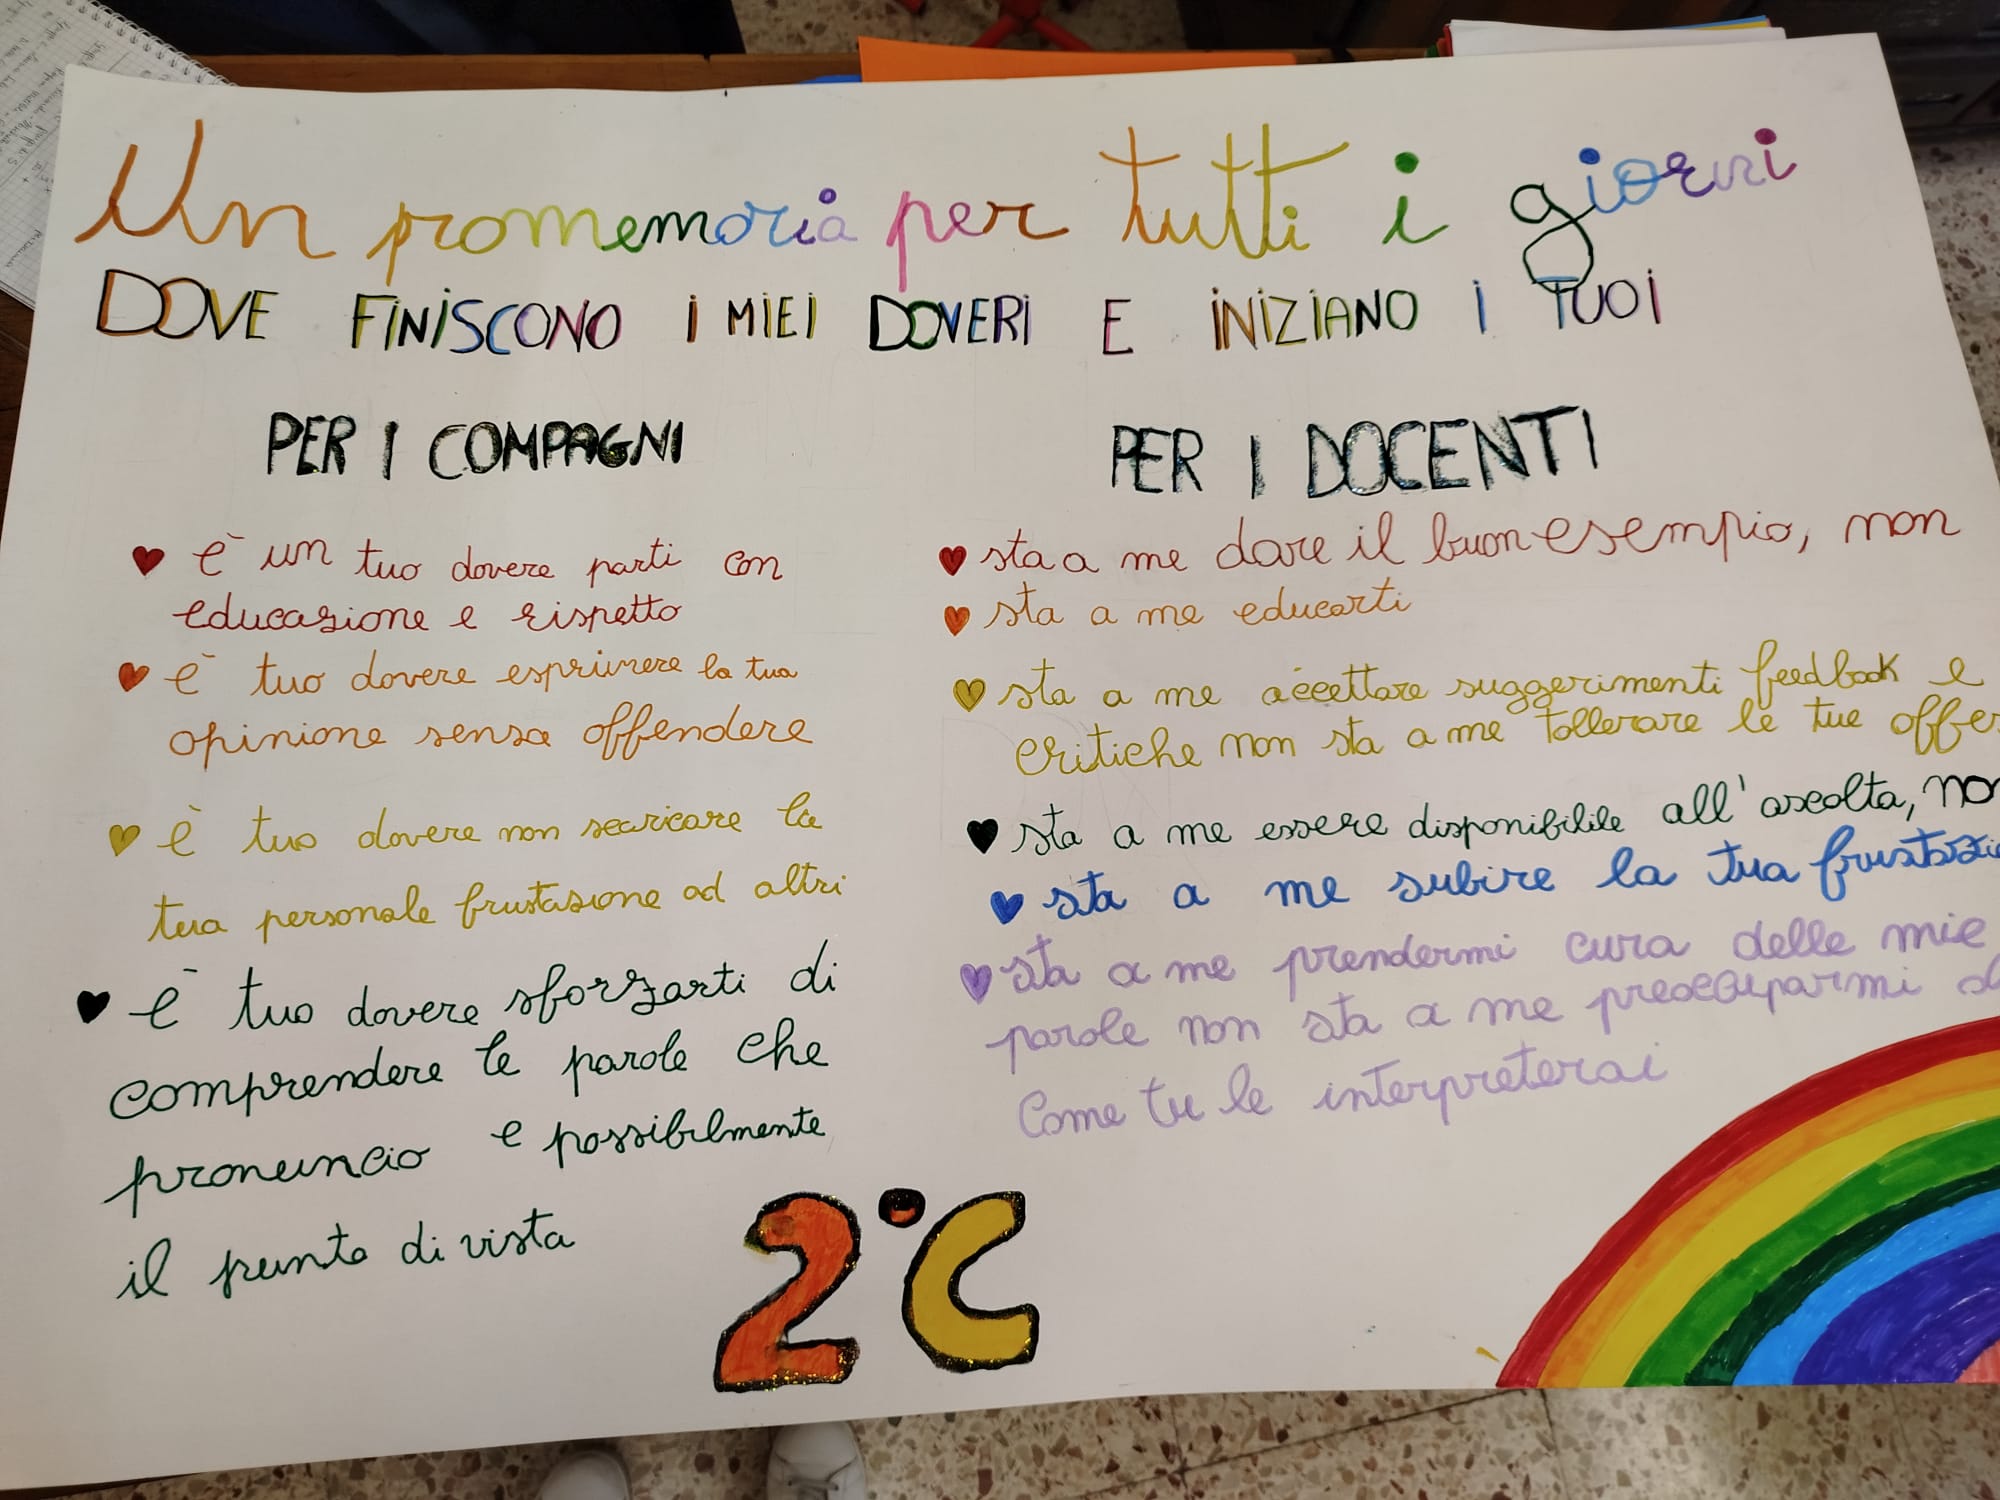 Un promemoria per tutti i giorni
DOVE FINISCONO I MIEI DOVERI E INIZIANO I TUOI
PER I COMPAGNI
è un tuo dovere parti con
educazione e rispetto
è tuo dovere esprimere la tua
opinione senza offendere
è tuo dovere non scaricare la
tua personale frustazione ad altri
è tuo dovere sforzarti di
comprendere le parole che
pronuncio e possibilmente
il punto di vista
PER I DOCENTI
sta a me dare il buon esempio, non
sta a me educarti
sta a me accettare suggerimenti feedback e
critiche non sta a me tollerare le tue
sta a me essere disponibilile all'ascolta, non
sta a me subire la tua
sta a me prendermi cura delle mie
parole non sta a me preoccuparmi
come tu le interpreterai
2°C